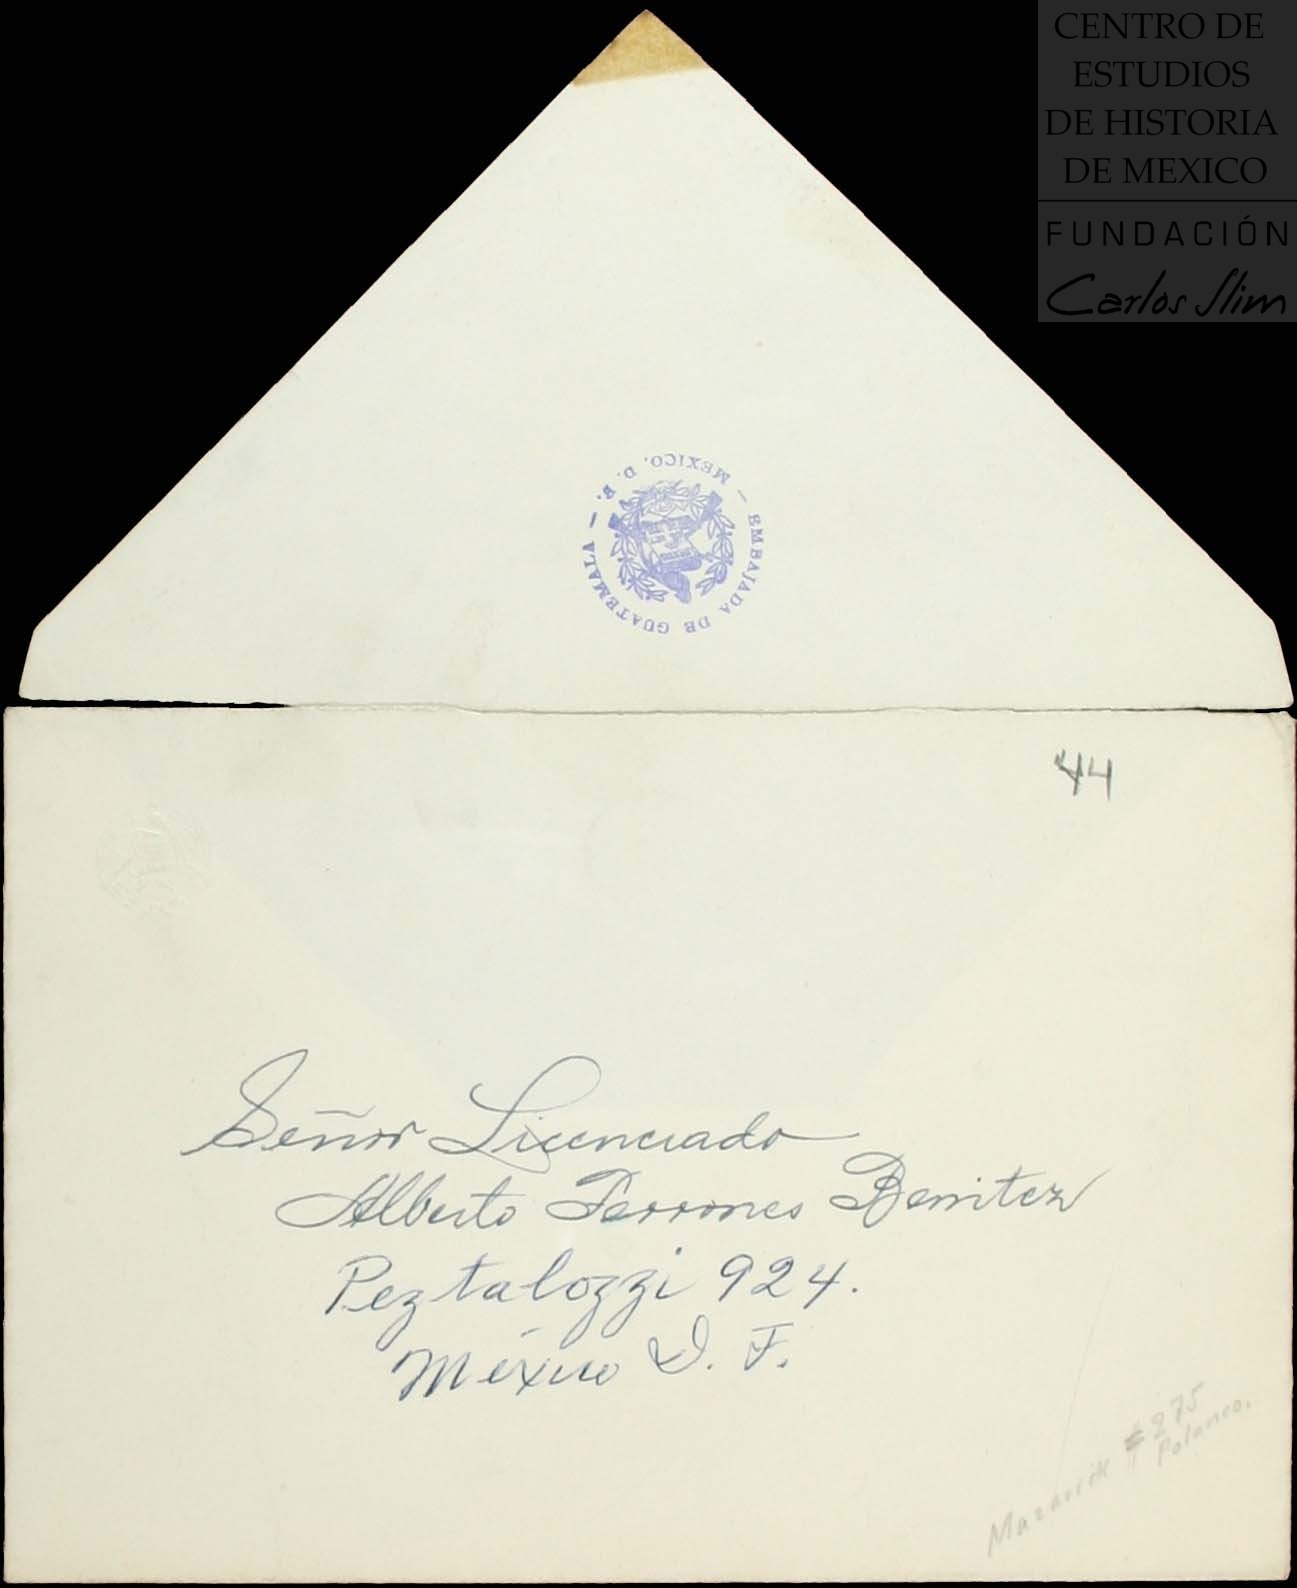 CENTRO DE
ESTUDIOS
DE HISTORIA
DE MEXICO
FUNDACIÓN
Carlos Slim
EMBAJADA DE GUATEMALA — MEXICO, D. F. —
44
Señor Licenciado
Alberto Terrones Benitez
Peztalozzi 924.
México D. F.
#275
Polanco.